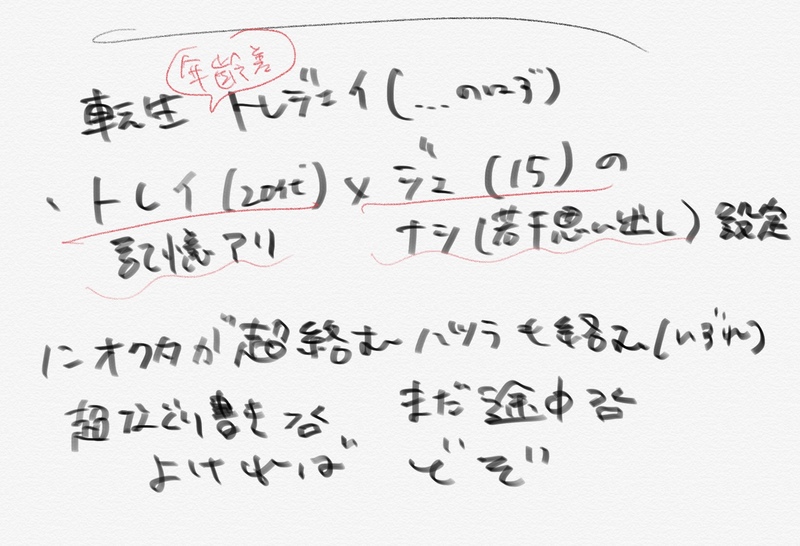 年齢差
転生 トレジェイ(…のはず)
、トレイ(20代) × ジェ(15)の
記憶アリ ナシ(若干思い出し)設定
にオクタが超絡む ハツラも絡む(いずれ)
超なぐり書き まだ途中
よければ どぞ